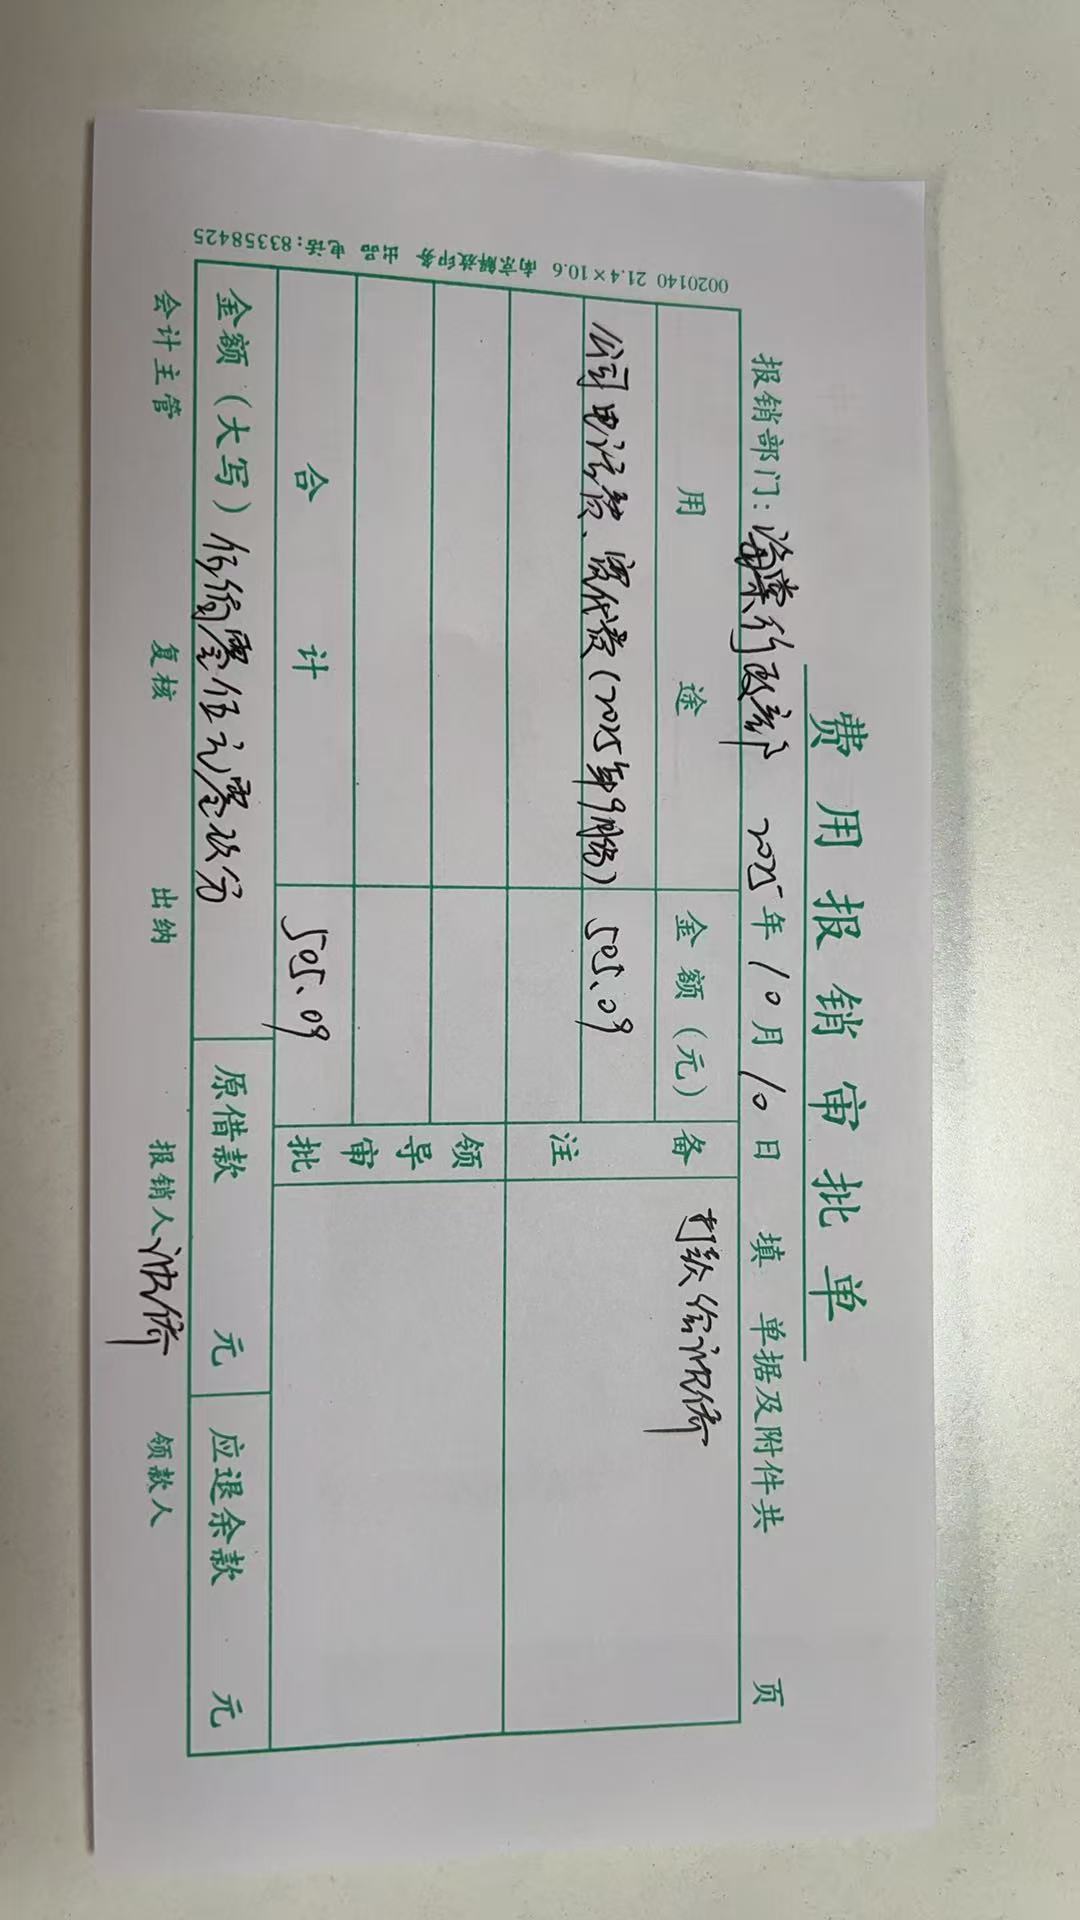 费用报销审批单
报销部门：海棠行政部 2025年10月10日填 单据及附件共 页
用途 金额（元） 备注 打款给
公司电话费、宽代费（2025年9月份） 505.09
领导审批
合计 505.09
金额（大写）伍佰零伍元零玖分 原借款 元 应退余款 元
会计主管 复核 出纳 报销人 领款人
0020140 21.4×10.6 南京解放印务 出品 电话：83358425